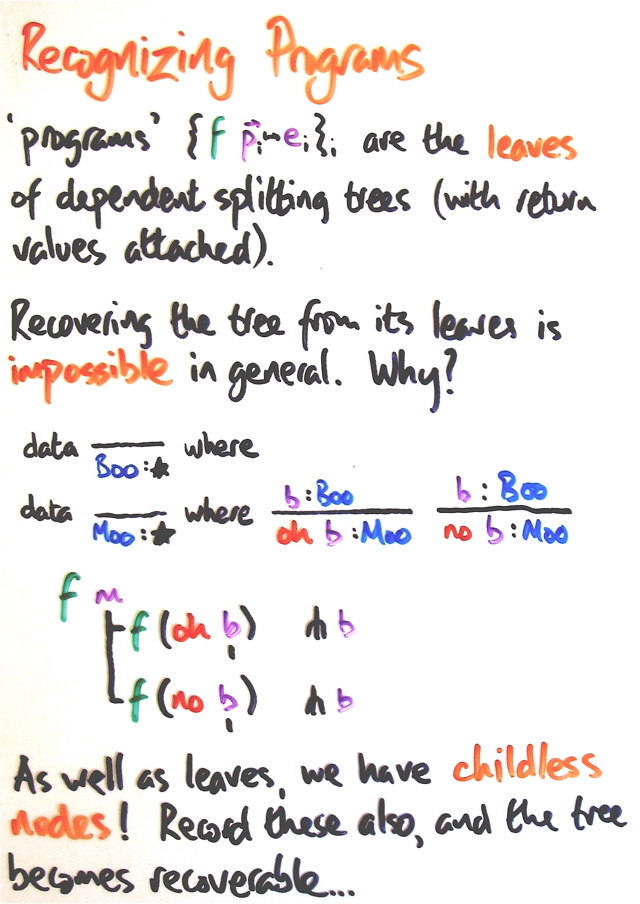 Recognizing Programs
'programs' {f p⃗ᵢ ↦ eᵢ}ᵢ are the leaves
of dependent splitting trees (with return
values attached).
Recovering the tree from its leaves is
impossible in general. Why?
data ‾‾‾ where
Boo : ★
data ‾‾‾ where b : Boo b : Boo
Moo : ★ oh b : Moo no b : Moo
f m
f (oh b) ⋔ b
f (no b) ⋔ b
As well as leaves, we have childless
nodes! Record these also, and the tree
becomes recoverable...